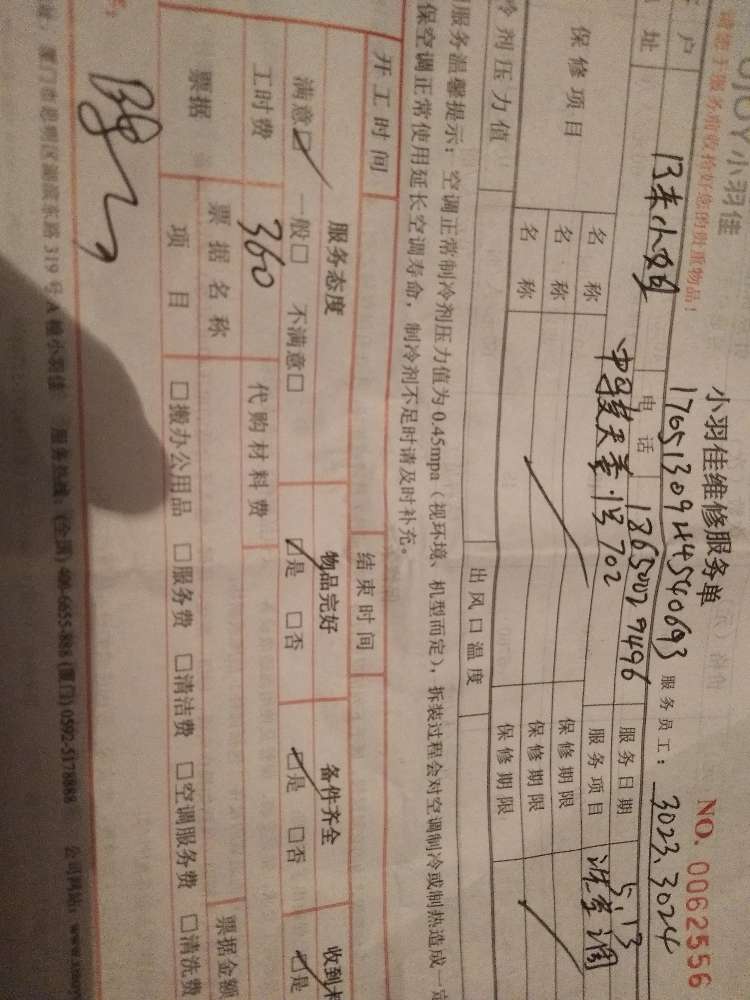 OJOY小羽佳
小羽佳维修服务单
NO. 0062556
请您于服务前收拾好您的贵重物品！
17051309244540693
服务员工：3023.3024
户
小姐
电话
18650029496
服务日期
5.13
址
702
服务项目
洗空调
保修项目
名称
保修期限
名称
保修期限
名称
保修期限
冷剂压力值
出风口温度
服务温馨提示：空调正常制冷剂压力值为0.45mpa（视环境、机型而定），拆装过程会对空调制冷或制热造成一定
保空调正常使用延长空调寿命，制冷剂不足时请及时补充。
开工时间
结束时间
服务态度
物品完好
备件齐全
收到
满意☑ 一般□ 不满意□
☑是 □否
☑是 □否
☑是
工时费
360
代购材料费
票据
票据名称
票据金额
项目
□搬办公用品 □服务费 □清洁费 □空调服务费 □清洗费
厦门市思明区湖滨东路319号A幢小羽佳 服务热线：(全国) 400-6655-888 (厦门) 0592-5178888 公司网站：www.